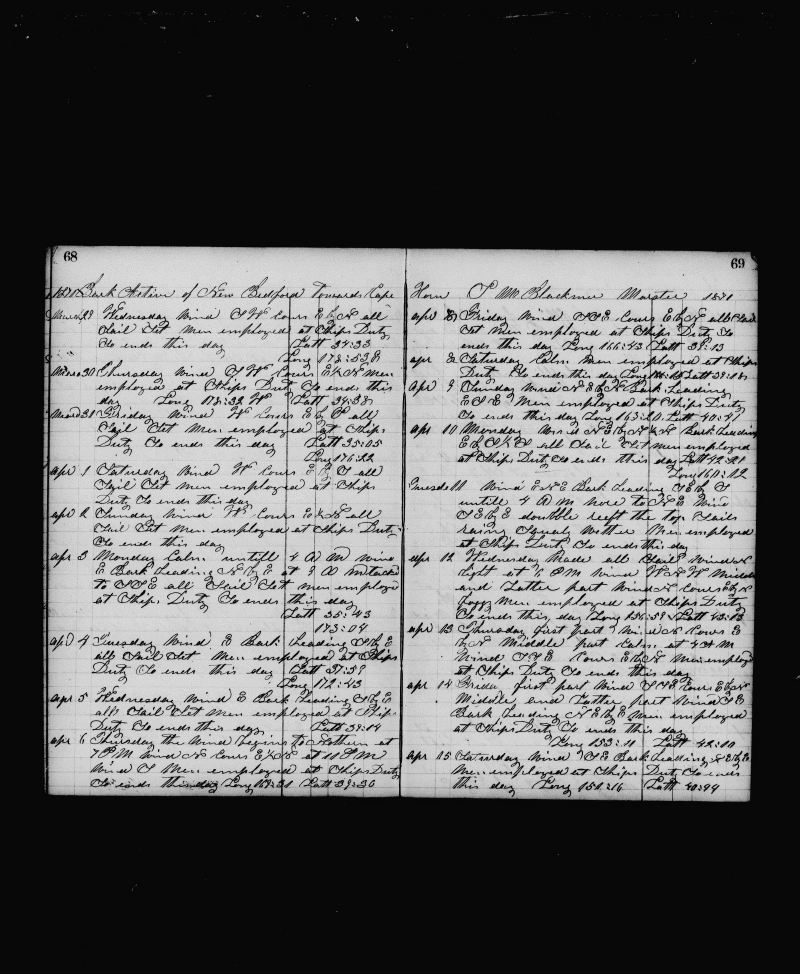 68
1871 Bark Active of New Bedford Towards Cape
March 29 Wednesday Wind S W Cours E b N all
Sail Set Men employed at Ships Duty
So ends this day Latt 34:33
Long 178:53 E
March 30 Thursday Wind S W Cours E b N men
employed at Ships Duty So ends this
day Long 178:32 W Latt 34:38
March 31 Friday Wind W Cours E b S all
Sail Set Men employed at Ships
Duty So ends this day Latt 35:05
Long 176:22
apr 1 Saturday Wind W Cours E b S all
Sail Set men employed at Ships
Duty So ends this day
apr 2 Sunday Wind W Cours E b N all
Sail Set Men employed at Ships Duty
So ends this day
apr 3 Monday Calm untill 4 A M Wind
E Bark Leading N b E at 9 A M tacked
to S S E all Sail Set men employed
at Ships Duty So ends this day
Latt 35:43
173:04
apr 4 Tuesday Wind E Bark Leading S b E
all Sail Set Men employed at Ships
Duty So ends this day Latt 37:59
Long 172:43
apr 5 Wednesday Wind E Bark Leading S b E
all Sail Set men employed at Ships
Duty So ends this day Latt 39:04
apr 6 Thursday the Wind begins to Northern at
7 P M Wind N Cours E b N at 11 P M
Wind S Men employed at Ships Duty
So ends this day Long 169:31 Latt 39:30
69
Horn T M Blackmer Master 1871
apr Friday Wind S S E Cours E b N all Sail
Set Men employed at Ships Duty So
ends this day Long 166:43 Latt 39:13
apr 8 Saturday Calm Men employed at Ships
Duty So ends this day Long Latt 39:18
apr 9 Sunday Wind N E b N Bark Leading
E S E Men employed at Ships Duty
So ends this day Long 163:20 Latt 40:
apr 10 Monday Wind N E b N Bark Leading
E b S all Sail Set men employed
at Ships Duty So ends this day Latt 42:21
Long 160:12
Tuesday 11 Wind E N E Bark Leading S E b S
untill 4 A M wore to N E Wind
S E b E doubble reeft the top Sails
raing Squaly Wether Men employed
at Ships Duty So ends this day
apr 12 Wednesday Made all Sail Wind N
Light at 6 P M Wind W N W Middle
and Latter part Wind N Cours E b N
foggy Men employed at Ships Duty
So ends this day Long 156:59 Latt 43:13
apr 13 Thursday first part Wind N Cours E
b N Middle part Calm at 4 A M
Wind S S E Cours E b N Men employd
at Ships Duty So ends this day
apr 14 Friday first part Wind S S E Cours E b N
Middle and Latter part Wind S E
Bark Leading N E b E Men employed
at Ships Duty So ends this day
Long 153:11 Latt 42:00
apr 15 Saturday Wind S E Bark Leading N E b E
Men employed at Ships Duty So ends
this day Long 151:16 Latt 40:44